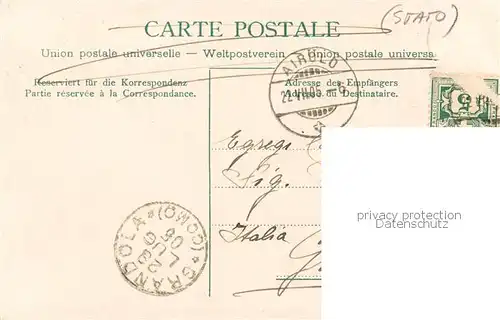 CARTE POSTALE
(STATO)
Union postale universelle — Weltpostverein — Union postale universa
Reserviert für die Korrespondenz
Partie réservée à la Correspondance.
Adresse des Empfängers
Adresse du Destinataire.
AIROLO
22.VII.06.
5
Egregi
Sig.
Italia
GRANDOLA * (COMO) *
23 LUG 06
privacy protection